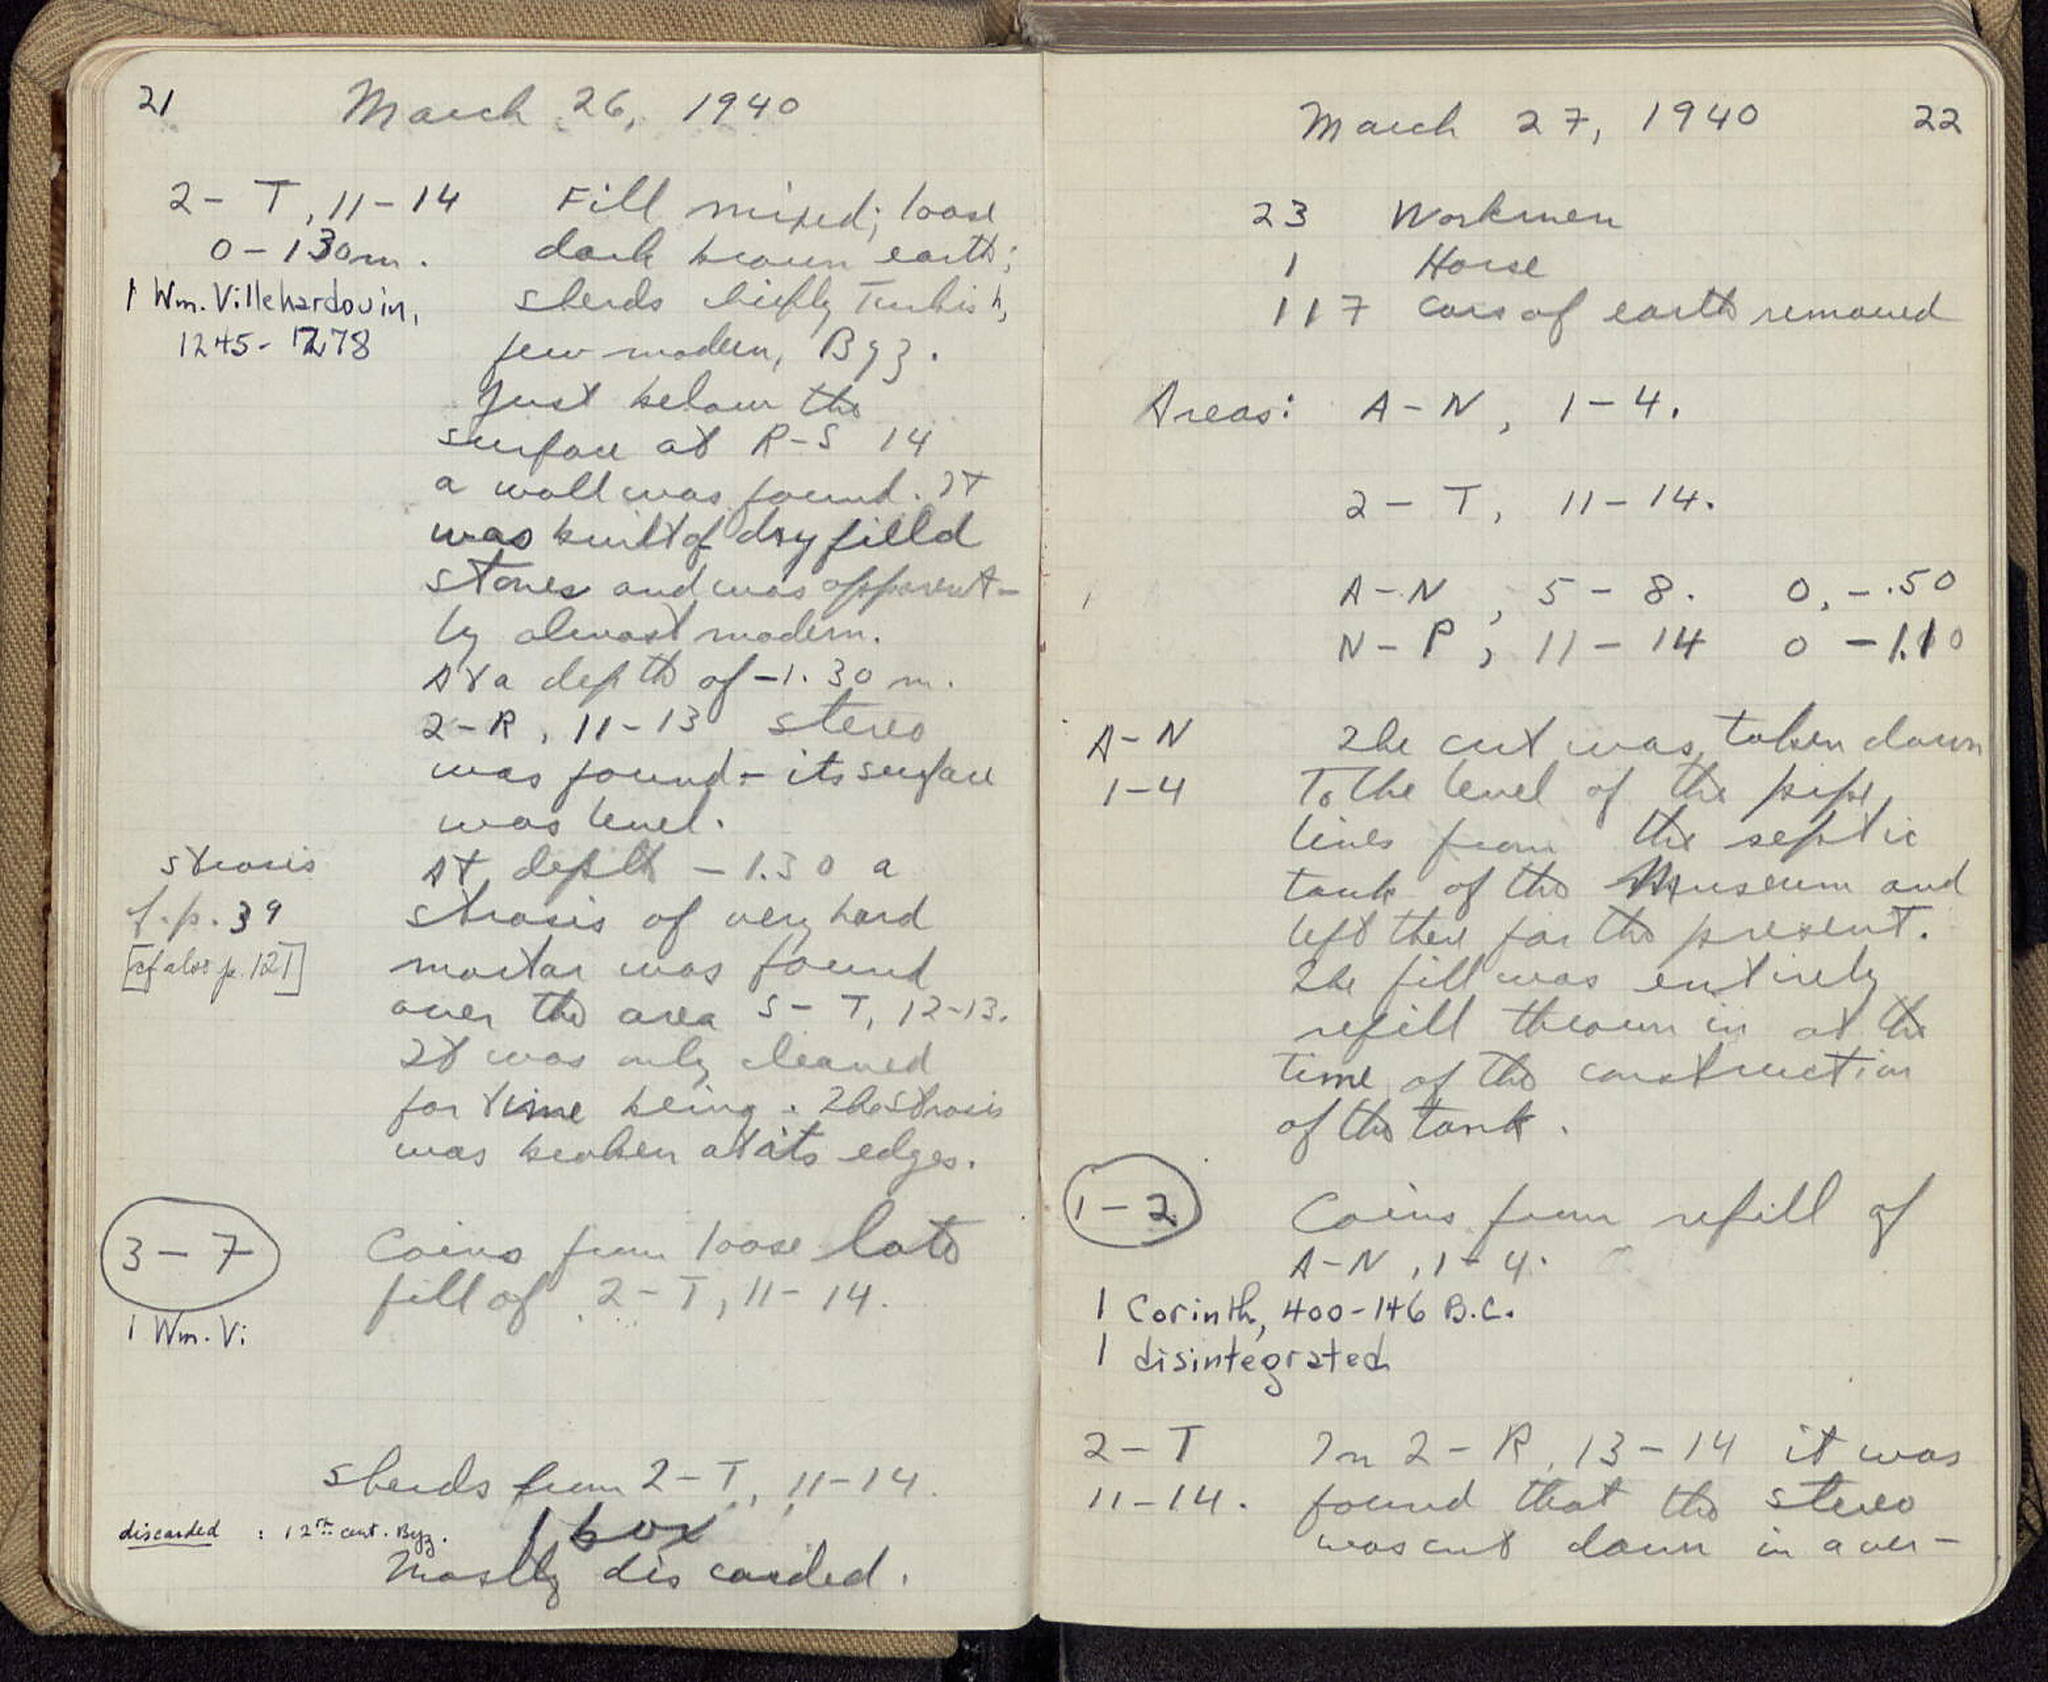 21
March 26, 1940
2 - T, 11 - 14 Fill mixed; loose
0 - 1.30 m. dark brown earth;
1 Wm. Villehardouin, sherds chiefly Turkish,
1245 - 1278 few modern, Byz.
Just below the
surface at R-S 14
a wall was found. It
was built of dry field
stones and was apparent-
ly almost modern.
At a depth of -1.30 m.
2-R, 11-13 stereo
was found - its surface
was level.
strosis At depth - 1.30 a
cf. p. 39 strosis of very hard
[cf also p. 121] mortar was found
over the area S - T, 12-13.
It was only cleaned
for time being. The strosis
was broken at its edges.
3 - 7 Coins from loose late
fill of 2 - T, 11 - 14.
1 Wm. Vi
sherds from 2 - T, 11-14.
discarded : 12th cent. Byz. 1 box
Mostly discarded.
March 27, 1940 22
23 Workmen
1 Horse
117 cars of earth removed
Areas: A - N, 1 - 4.
2 - T, 11 - 14.
A - N, 5 - 8. 0, - .50
N - P, 11 - 14 0 - 1.10
A - N The cut was taken down
1 - 4 To the level of the pipe
lines from the septic
tank of the Museum and
left there for the present.
The fill was entirely
refill thrown in at the
time of the construction
of the tank.
1 - 2 Coins from refill of
A - N, 1 - 4.
1 Corinth, 400-146 B.C.
1 disintegrated
2 - T In 2 - R, 13 - 14 it was
11 - 14. found that the stereo
was cut down in a ver-